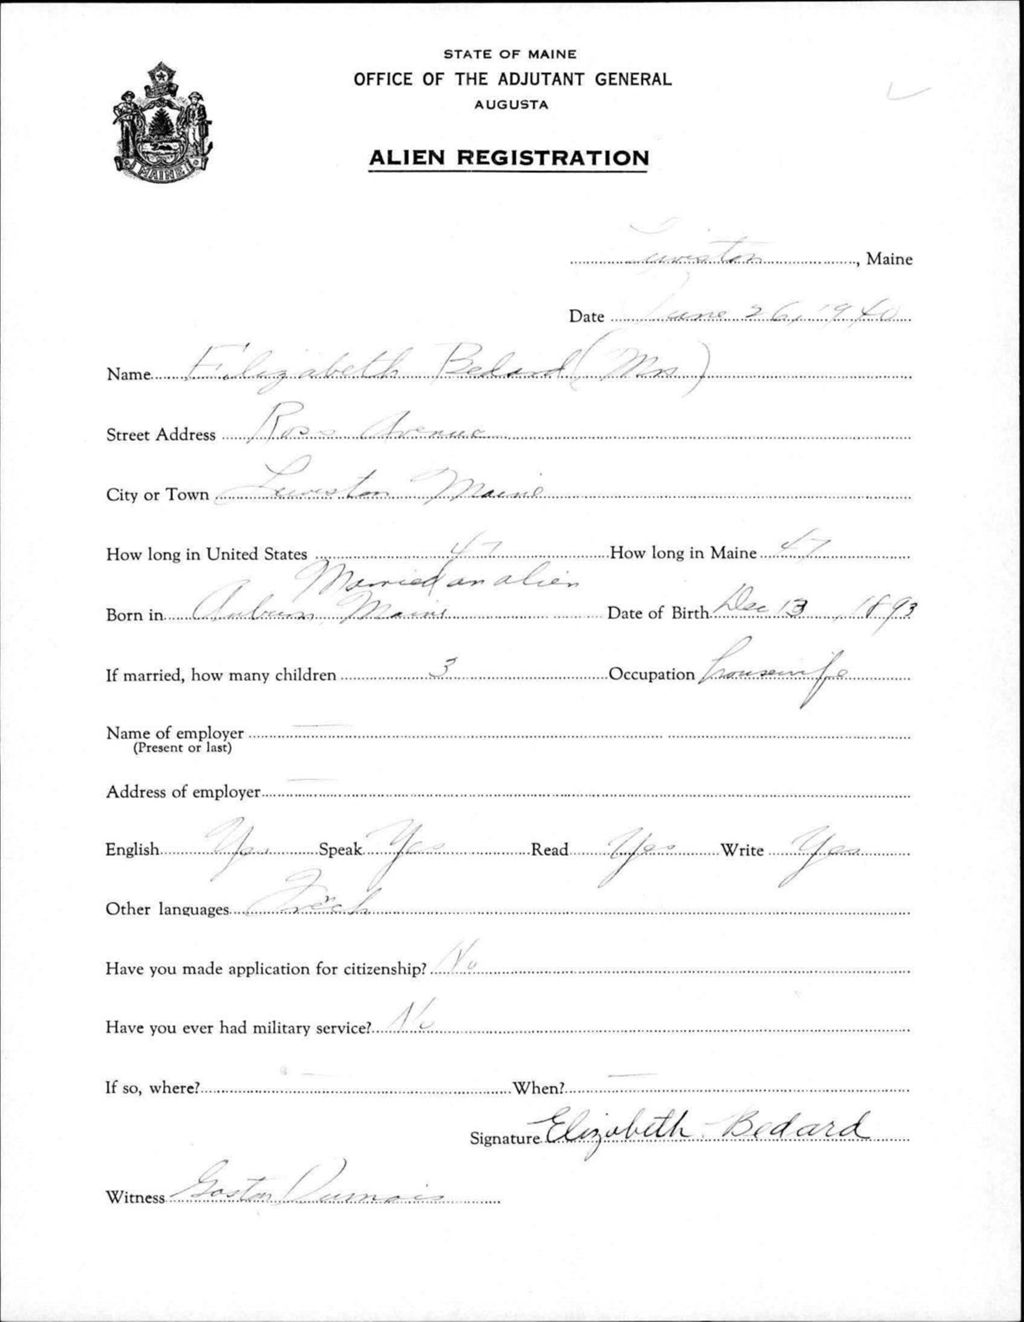 STATE OF MAINE
OFFICE OF THE ADJUTANT GENERAL
AUGUSTA
ALIEN REGISTRATION
MAINE
Lewiston, Maine
Date June 26, 1940
Name Elizabeth Bedard (Mrs)
Street Address Ross Avenue
City or Town Lewiston Maine
How long in United States 47 How long in Maine 47
Married an alien
Born in Auburn, Maine Date of Birth Dec 13, 1893
If married, how many children 3 Occupation housewife
Name of employer —
(Present or last)
Address of employer —
English Yes Speak Yes Read Yes Write Yes
Other languages French
Have you made application for citizenship? No
Have you ever had military service? No
If so, where? — When? —
Signature Elizabeth Bedard
Witness Gaston Dumais